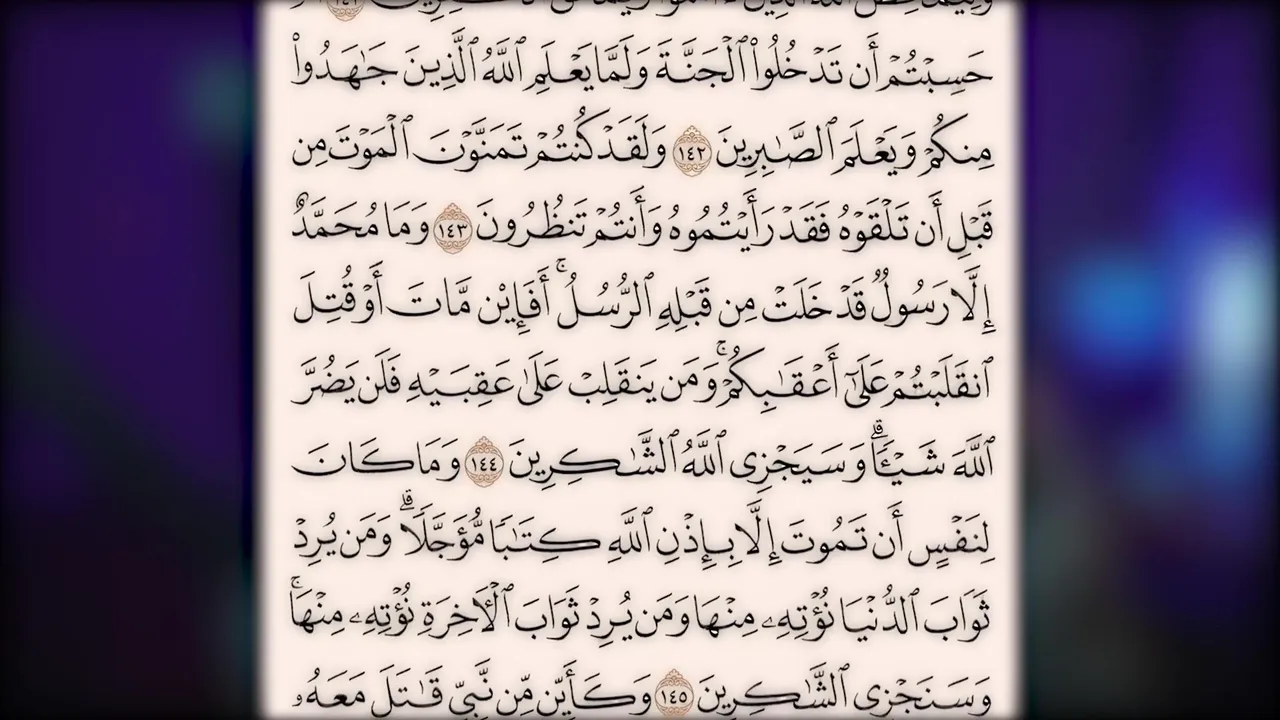 حَسِبْتُمْ أَن تَدْخُلُوا۟ ٱلْجَنَّةَ وَلَمَّا يَعْلَمِ ٱللَّهُ ٱلَّذِينَ جَـٰهَدُوا۟
مِنكُمْ وَيَعْلَمَ ٱلصَّـٰبِرِينَ ١٤٢ وَلَقَدْ كُنتُمْ تَمَنَّوْنَ ٱلْمَوْتَ مِن
قَبْلِ أَن تَلْقَوْهُ فَقَدْ رَأَيْتُمُوهُ وَأَنتُمْ تَنظُرُونَ ١٤٣ وَمَا مُحَمَّدٌ
إِلَّا رَسُولٌ قَدْ خَلَتْ مِن قَبْلِهِ ٱلرُّسُلُ ۚ أَفَإِي۟ن مَّاتَ أَوْ قُتِلَ
ٱنقَلَبْتُمْ عَلَىٰٓ أَعْقَـٰبِكُمْ ۚ وَمَن يَنقَلِبْ عَلَىٰ عَقِبَيْهِ فَلَن يَضُرَّ
ٱللَّهَ شَيْـًٔا ۗ وَسَيَجْزِى ٱللَّهُ ٱلشَّـٰكِرِينَ ١٤٤ وَمَا كَانَ
لِنَفْسٍ أَن تَمُوتَ إِلَّا بِإِذْنِ ٱللَّهِ كِتَـٰبًا مُّؤَجَّلًا ۗ وَمَن يُرِدْ
ثَوَابَ ٱلدُّنْيَا نُؤْتِهِۦ مِنْهَا وَمَن يُرِدْ ثَوَابَ ٱلْـَٔاخِرَةِ نُؤْتِهِۦ مِنْهَا ۚ
وَسَنَجْزِى ٱلشَّـٰكِرِينَ ١٤٥ وَكَأَيِّن مِّن نَّبِىٍّ قَـٰتَلَ مَعَهُۥ